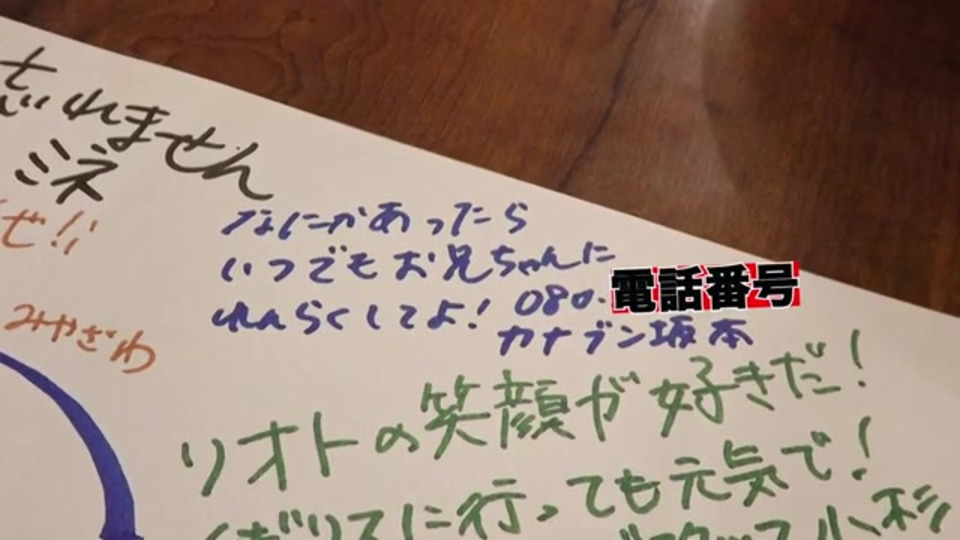 忘れません
ミネ
ぜ!!
みやざわ
なにかあったら
いつでもお兄ちゃんに
れんらくしてよ! 080-電話番号
カナブン坂本
リオトの笑顔が好きだ!
イギリスに行っても元気で!
小杉